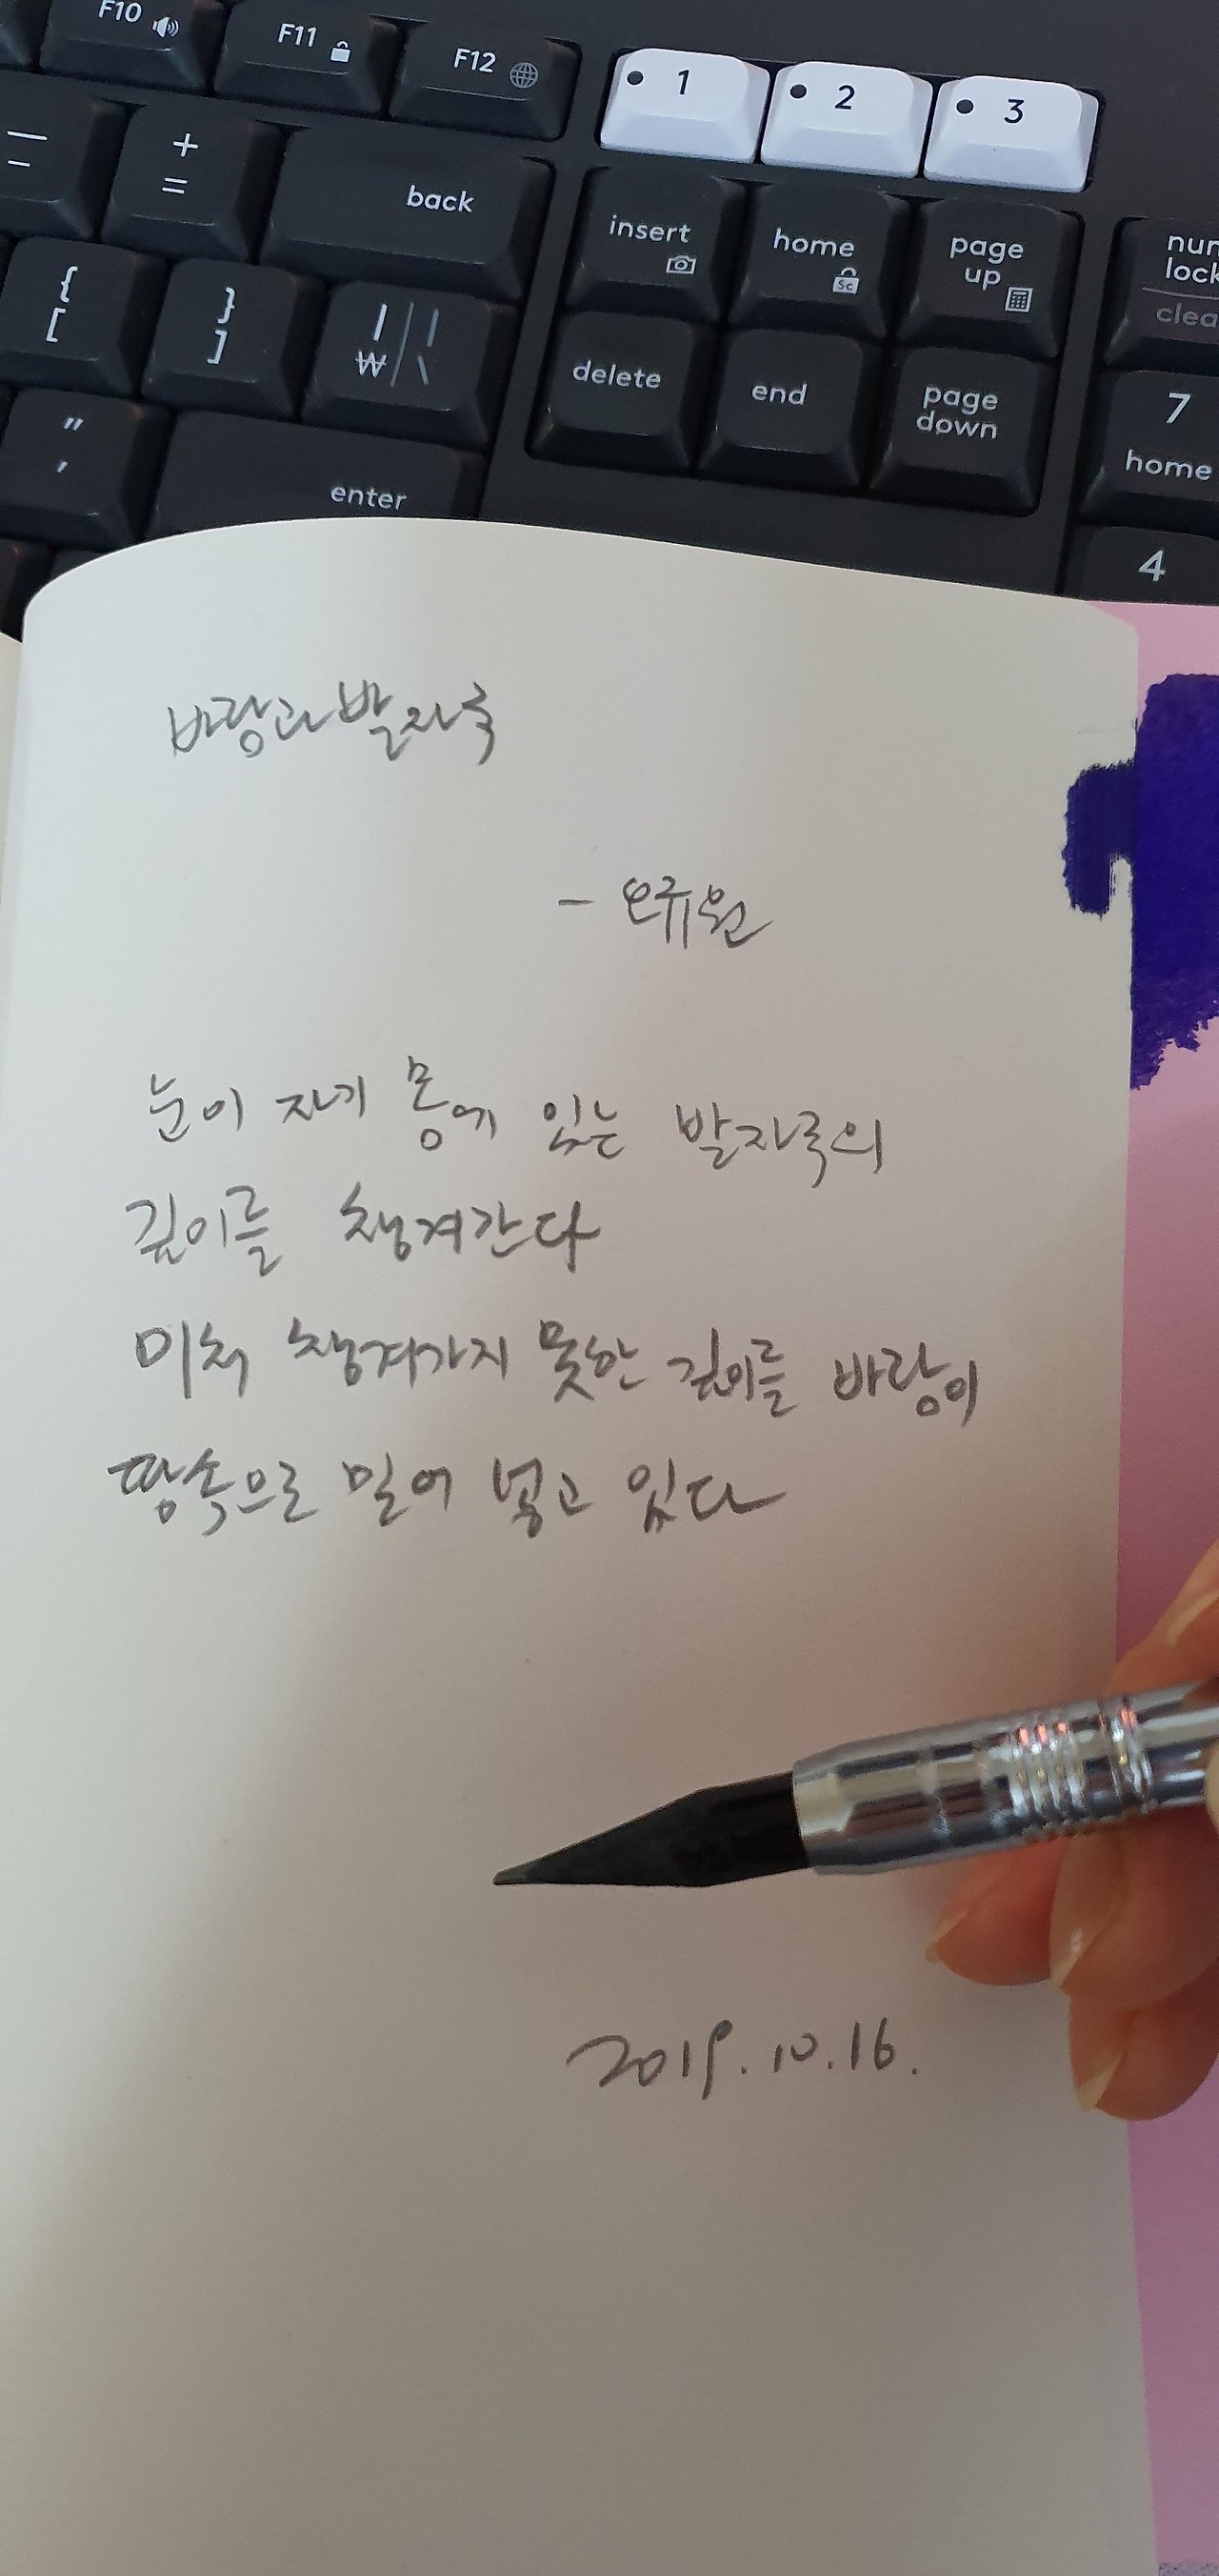 F10 F11 F12 1 2 3
— - + = back insert home page up num lock
{ [ } ] | ₩ | \ delete end page down clea
" ' enter 7 home
4
바람과 발자국
- 오규원
눈이 자기 몸에 있는 발자국의
깊이를 챙겨간다
미처 챙겨가지 못한 깊이를 바람이
땅속으로 밀어 넣고 있다
2019.10.16.